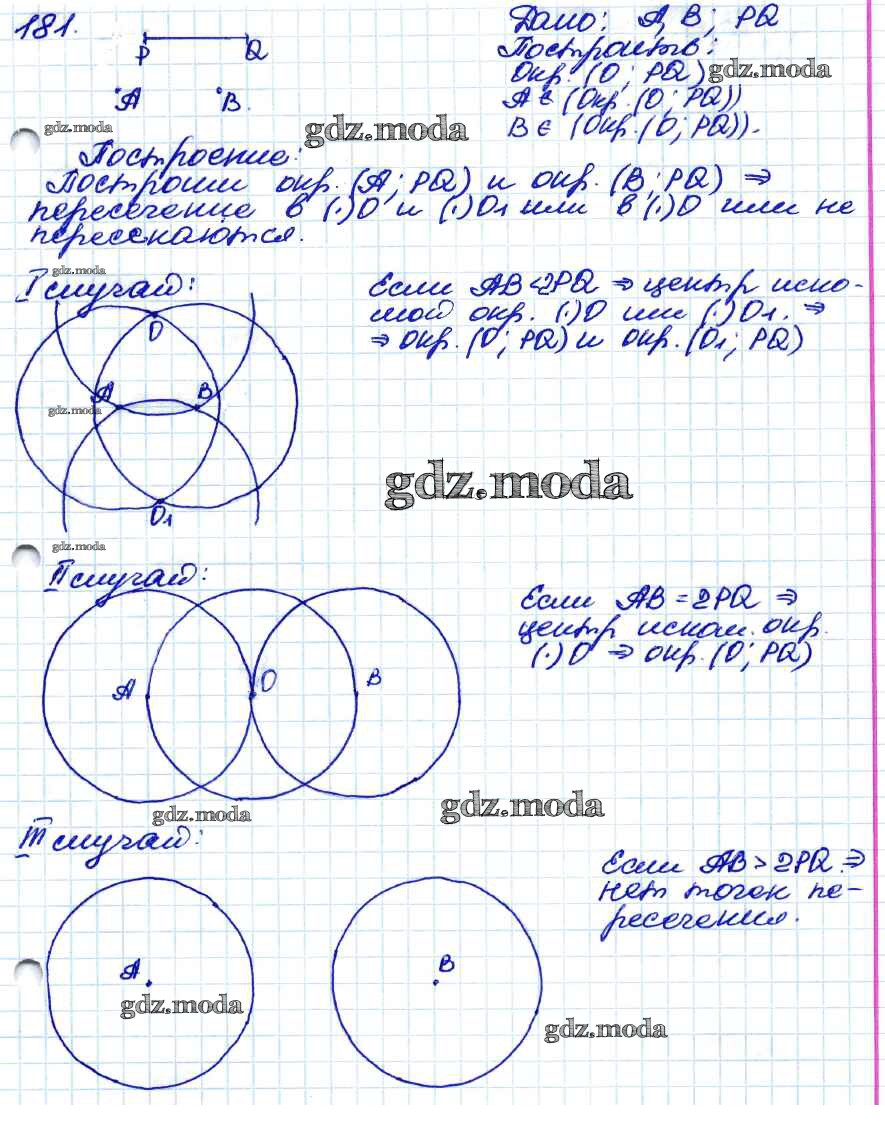 181.
P Q
A B.
Дано: A, B; PQ
Построить:
Окр. (O; PQ)
gdz.moda
A ∈ (Окр. (O; PQ))
B ∈ (Окр. (O; PQ)).
gdz.moda
gdz.moda
Построение:
Построим окр. (A; PQ) и окр. (B; PQ) ⇒
пересечение в (·)O и (·)O1 или в (·)O или не
пересекаются.
gdz.moda
I случай:
Если AB < 2PQ ⇒ центр иско-
мой окр. (·)O или (·)O1. ⇒
⇒ окр. (O; PQ) и окр. (O1; PQ)
O
A B
gdz.moda
O1
gdz.moda
gdz.moda
II случай:
Если AB = 2PQ ⇒
центр иском. окр.
(·)O ⇒ окр. (O; PQ)
A O B
gdz.moda
gdz.moda
III случай:
Если AB > 2PQ. ⇒
нет точек пе-
ресечения.
A B
gdz.moda
gdz.moda